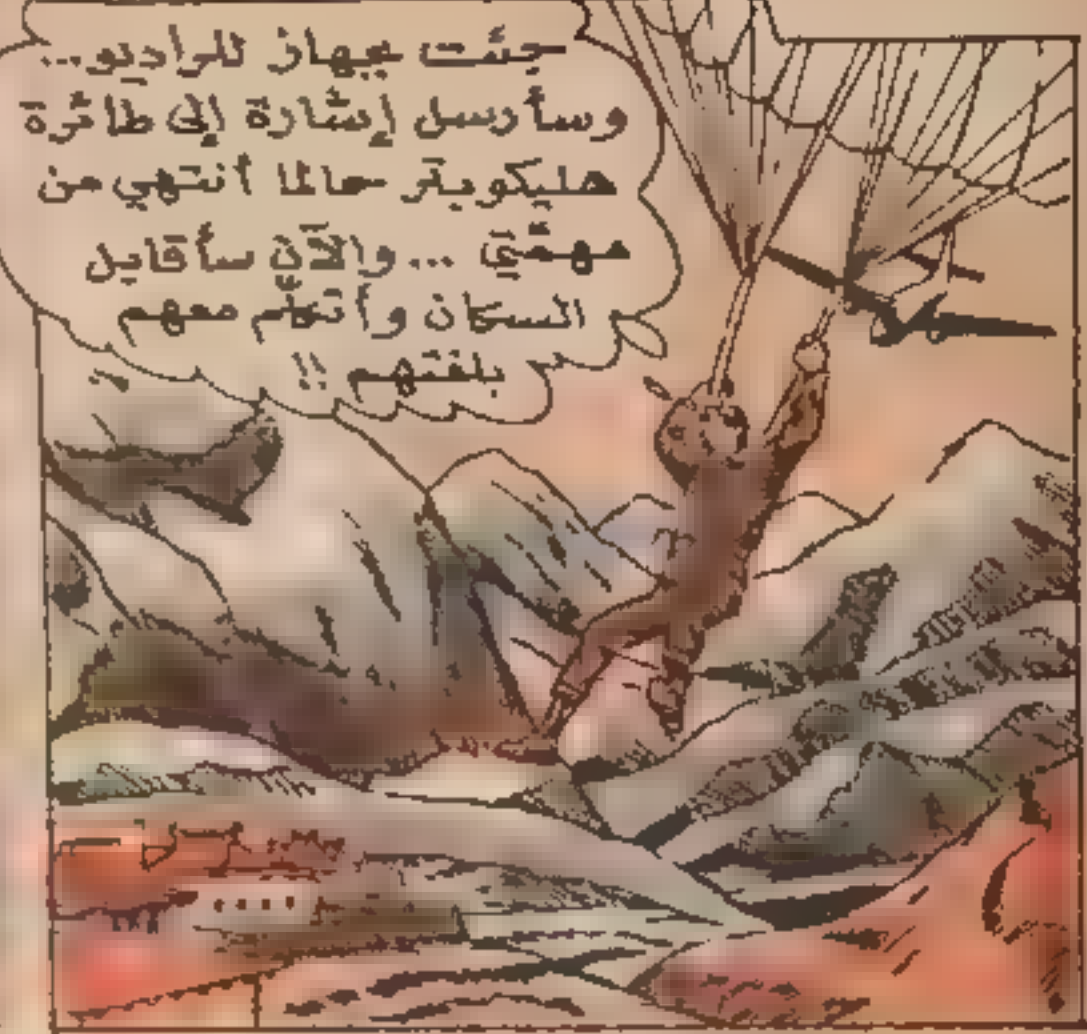 جئت بجهاز للراديو...
وسأرسل إشارة إلى طائرة
هليكوبتر حالما أنتهي من
مهمّتي ... والآن سأقابل
السكان وأتكلّم معهم
بلغتهم !!